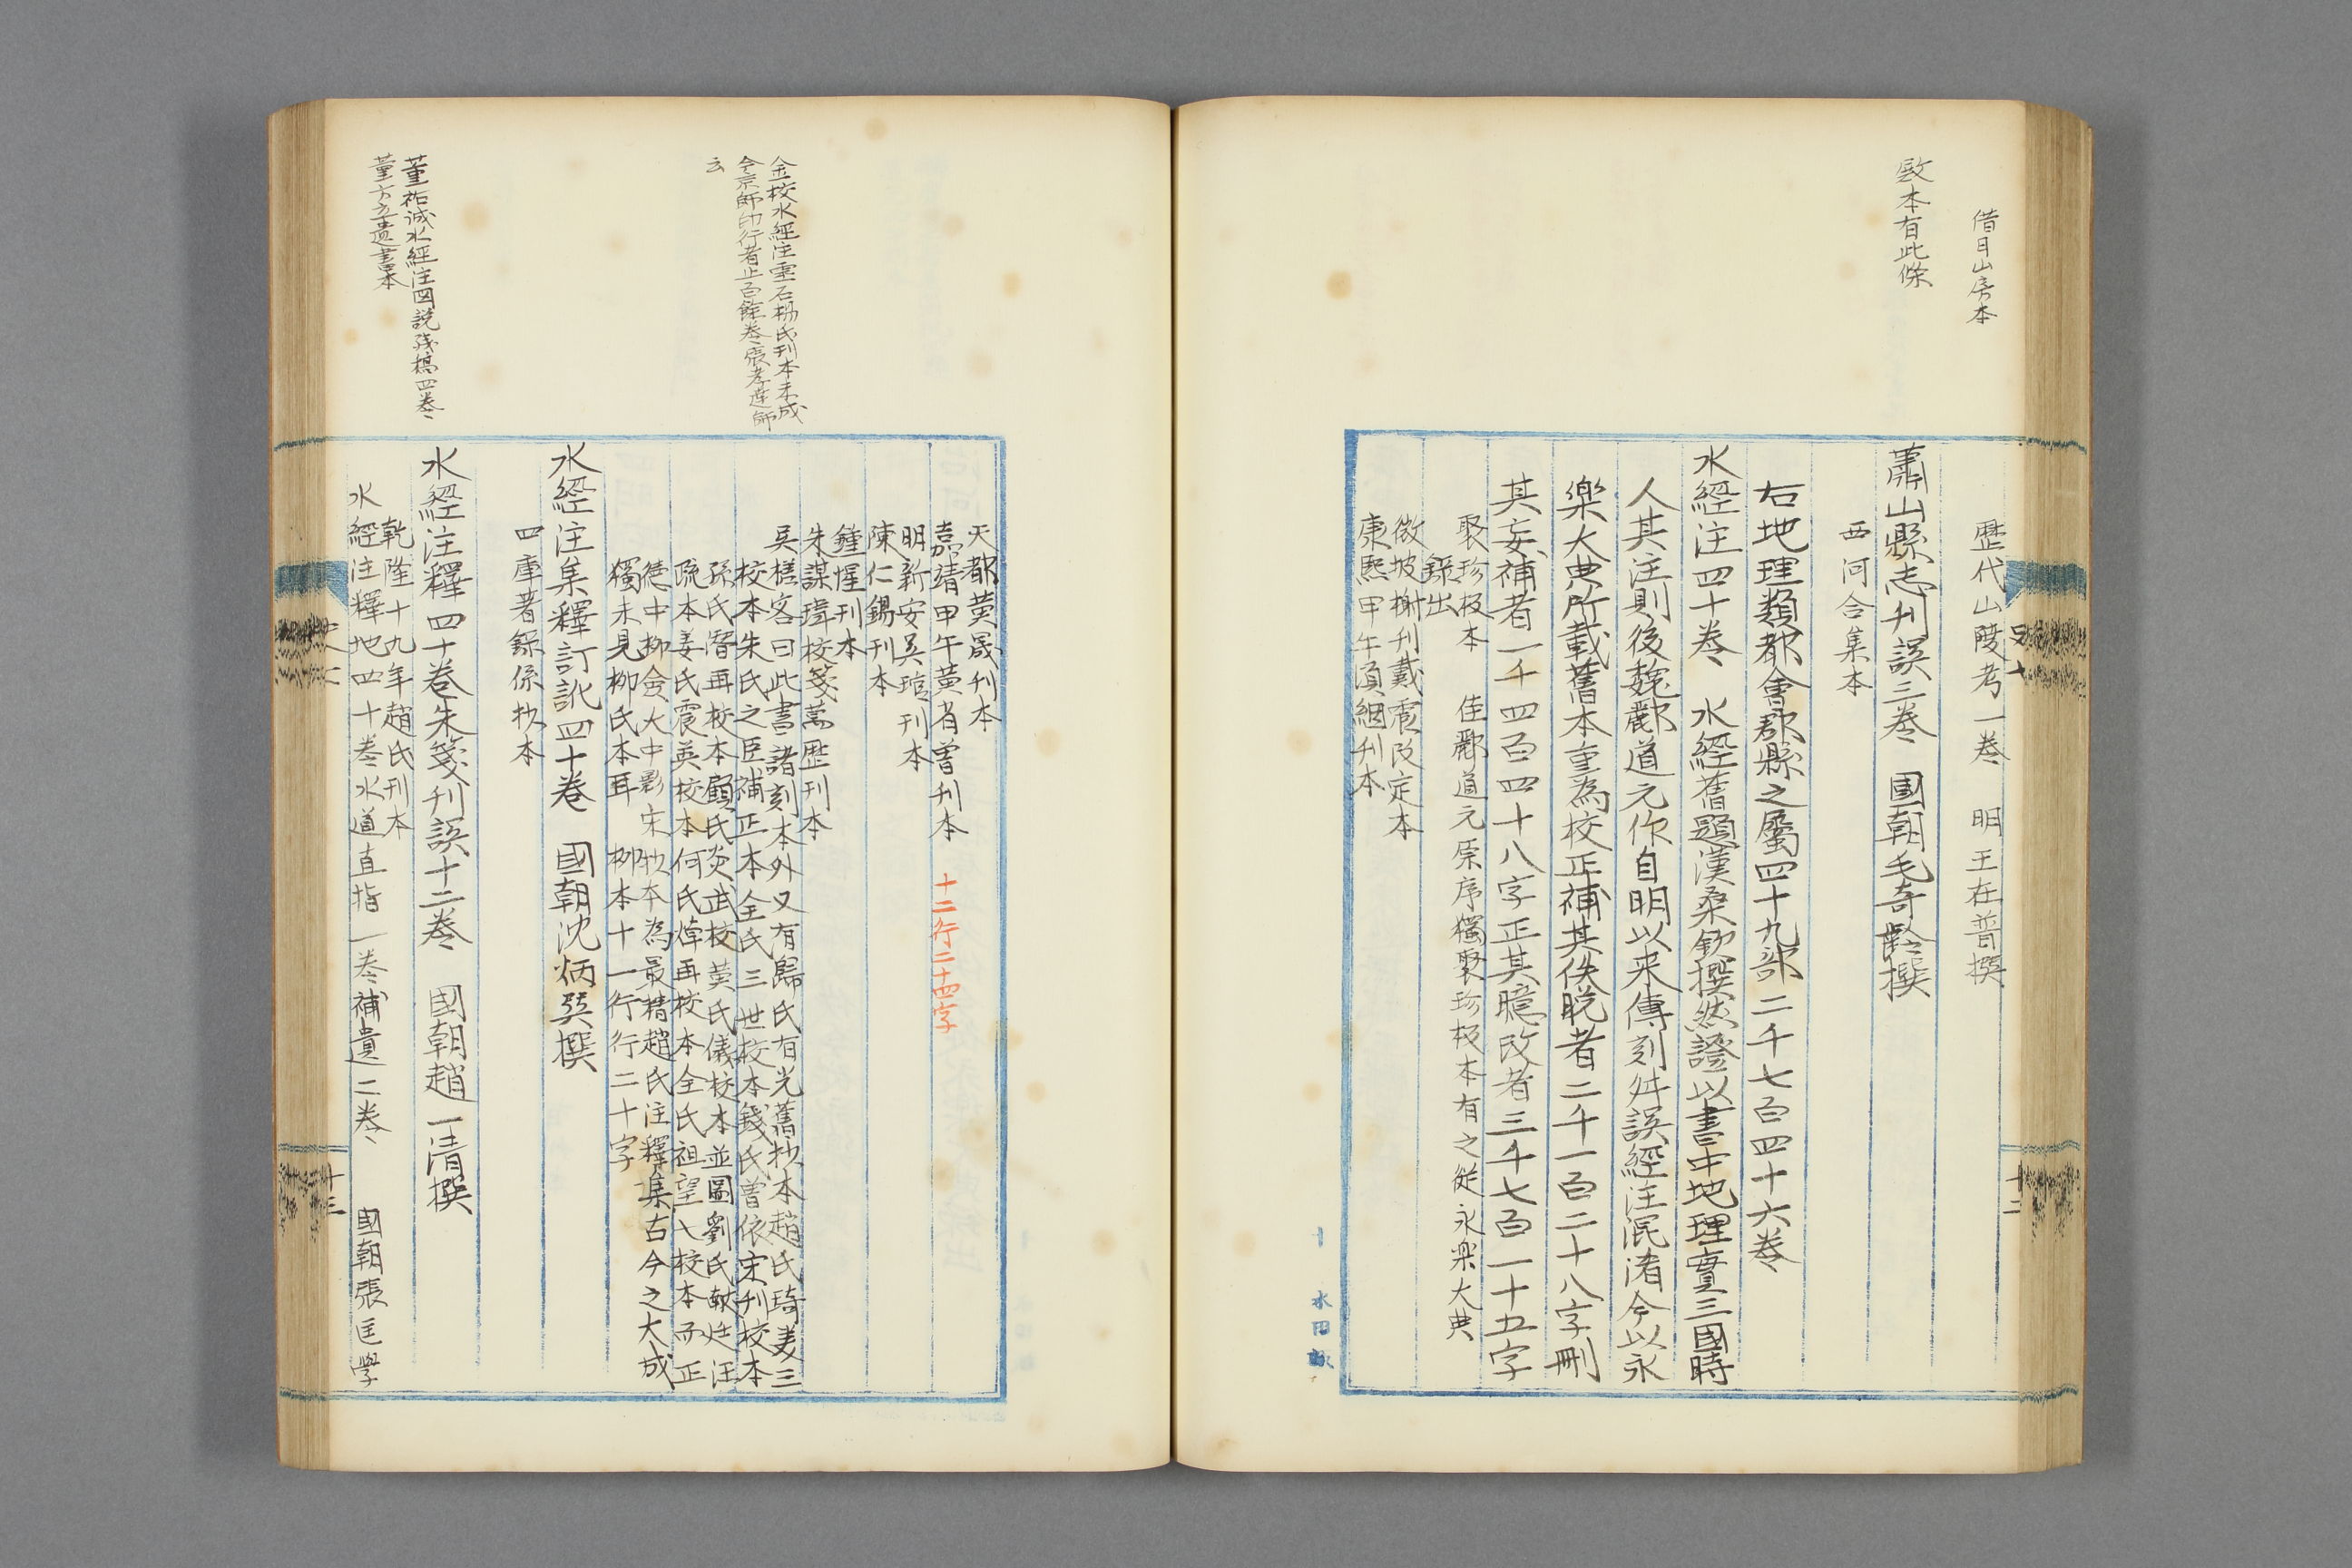 借月山房本
歷代山陵考一卷　明王在晉撰
蕭山縣志刋誤三卷　國朝毛奇齡撰
西河合集本
右地理類都會郡縣之屬四十九部二千七百四十六卷
水經注四十卷　水經舊題漢桑欽撰然證以書中地理實三國時
人其注則後魏酈道元作自明以来傳刻舛誤經注混淆今以永
樂大典所載舊本重為校正補其佚脫者二千一百二十八字刪
其妄補者一千四百四十八字正其臆改者三千七百一十五字
聚珍板本　佳酈道元原序獨聚珍板本有之從永樂大典
錄出
微坡榭刊戴震改定本
康熙甲午項絪刋本
本有此條
金校水經注靈石楊氏刊本未成
今京師印行者止百餘卷張孝達師
云
董祐誠水經注圖說殘槁四卷
董方立遺書本
天都黃晟刋本
嘉靖甲午黃省曾刋本　十二行二十四字
明新安吳琯刋本
陳仁錫刋本
鍾惺刋本
朱謀㙔校箋萬歷刋本
吳槎客曰此書諸刻本外又有歸氏有光舊抄本趙氏琦美三
校本朱氏之臣補正本全氏三世校本錢氏曾依宋刋校本
孫氏潛再校本顧氏炎武校黃氏儀校本並圖劉氏獻廷汪
疏本姜氏震英校本何氏焯再校本全氏祖望七校本而正
德中柳僉大中影宋抄本為最精趙氏注釋集古今之大成
獨未見柳氏本耳　柳本十一行行二十字
水經注集釋訂訛四十卷　國朝沈炳巽撰
四庫著錄係抄本
水經注釋四十卷朱箋刋誤十二卷　國朝趙一清撰
乾隆十九年趙氏刋本
水經注釋地四十卷水道直指一卷補遺二卷　國朝張匡學